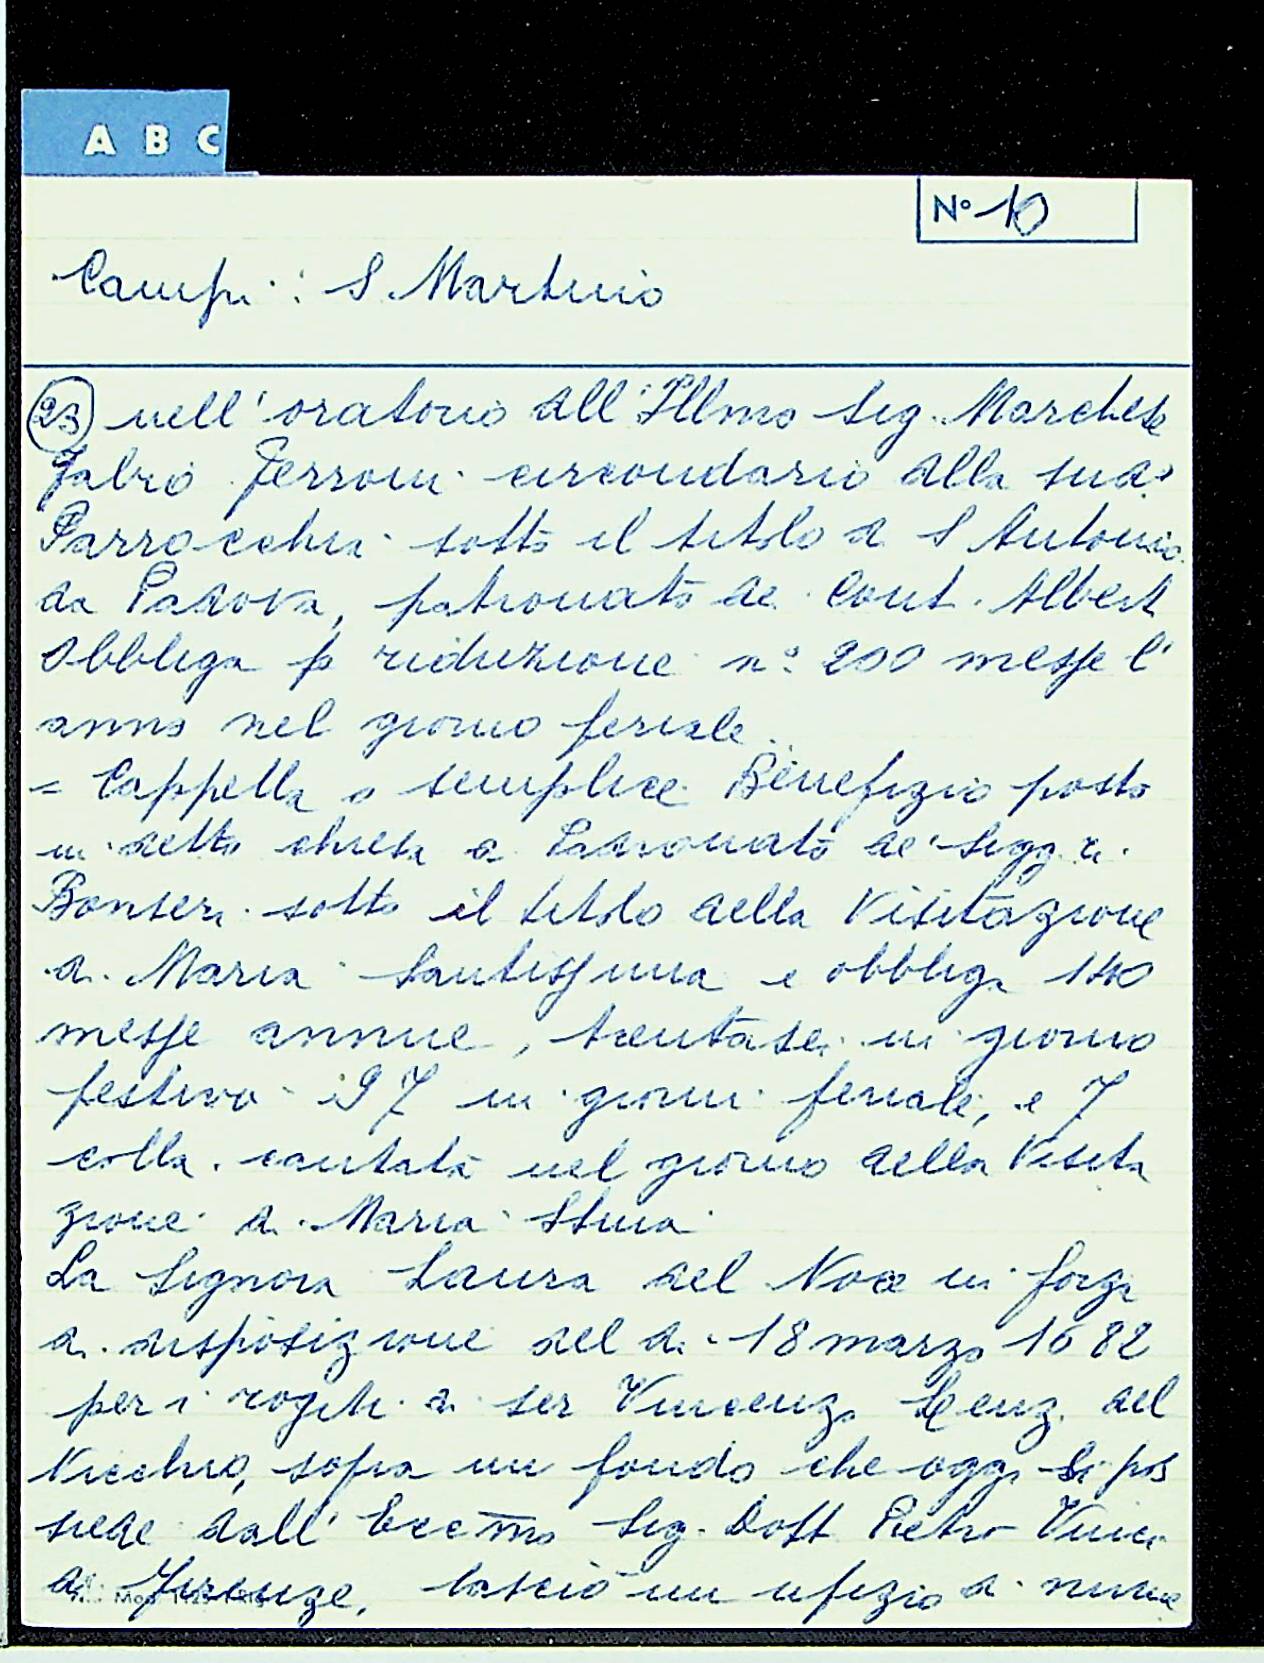 A B C
N° 10
Campi: S. Martino
23 nell'oratorio all'Illmo Sig. Marchese
Fabio Ferroni circondario alla sud.a
Parrocchia sotto il titolo di S Antonio
da Padova, patronato de Cont. Albert
Obbliga p riduzione n° 200 messe l'
anno nel giorno feriale.
= Cappella o semplice Benefizio posto
in detta chiesa di Padronato de' Sigg.ri
Bonseri sotto il titolo della Visitazione
di Maria Santissima e obbliga 140
messe annue, trentasei in giorno
festivo 97 in giorni feriale, e 7
colla cantata nel giorno della Visita
zione di Maria Stma
La Signora Laura del Noce in forza
di disposizione del di 18 marzo 1682
per i rogiti di ser Vincenzo Renzi del
Vicchio, sopra un fondo che oggi si pos
siede dall' Eccmo Sig. Dott Pietro Vinci
di Firenze, lasciò un ufizio di nume